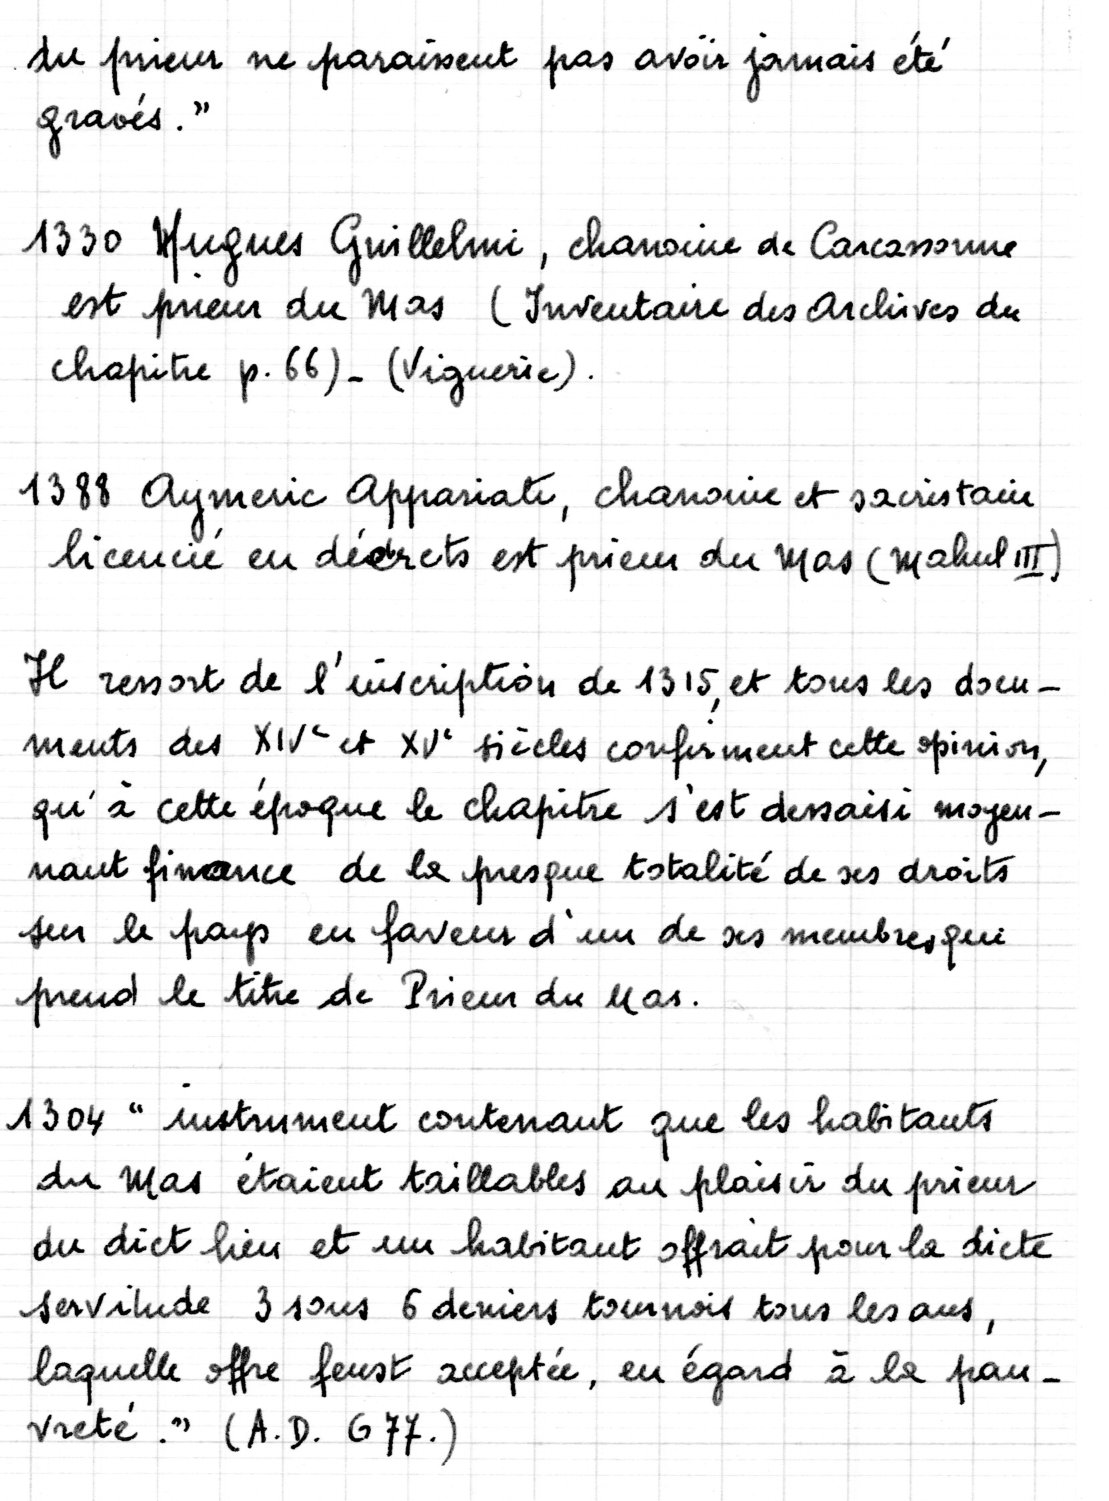 du prieur ne paraissent pas avoir jamais été
gravés."
1330 Hugues Guillelmi, chanoine de Carcassonne
est prieur du Mas (Inventaire des Archives du
chapitre p. 66) - (Viguerie).
1388 Aymeric Appariati, chanoine et sacristain
licencié en décrets est prieur du Mas (Mahul III)
Il ressort de l'inscription de 1315, et tous les docu-
ments des XIVe et XVe siècles confirment cette opinion,
qu'à cette époque le chapitre s'est dessaisi moyen-
nant finance de la presque totalité de ses droits
sur le pays en faveur d'un de ses membres, qui
prend le titre de Prieur du Mas.
1304 "instrument contenant que les habitants
du Mas étaient taillables au plaisir du prieur
du dict lieu et un habitant offrait pour la dicte
servitude 3 sous 6 deniers tournois tous les ans,
laquelle offre feust acceptée, eu égard à la pau-
vreté." (A.D. G 77.)